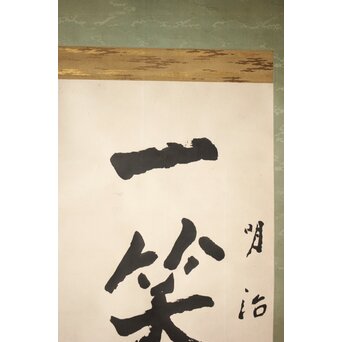 明治
一笑